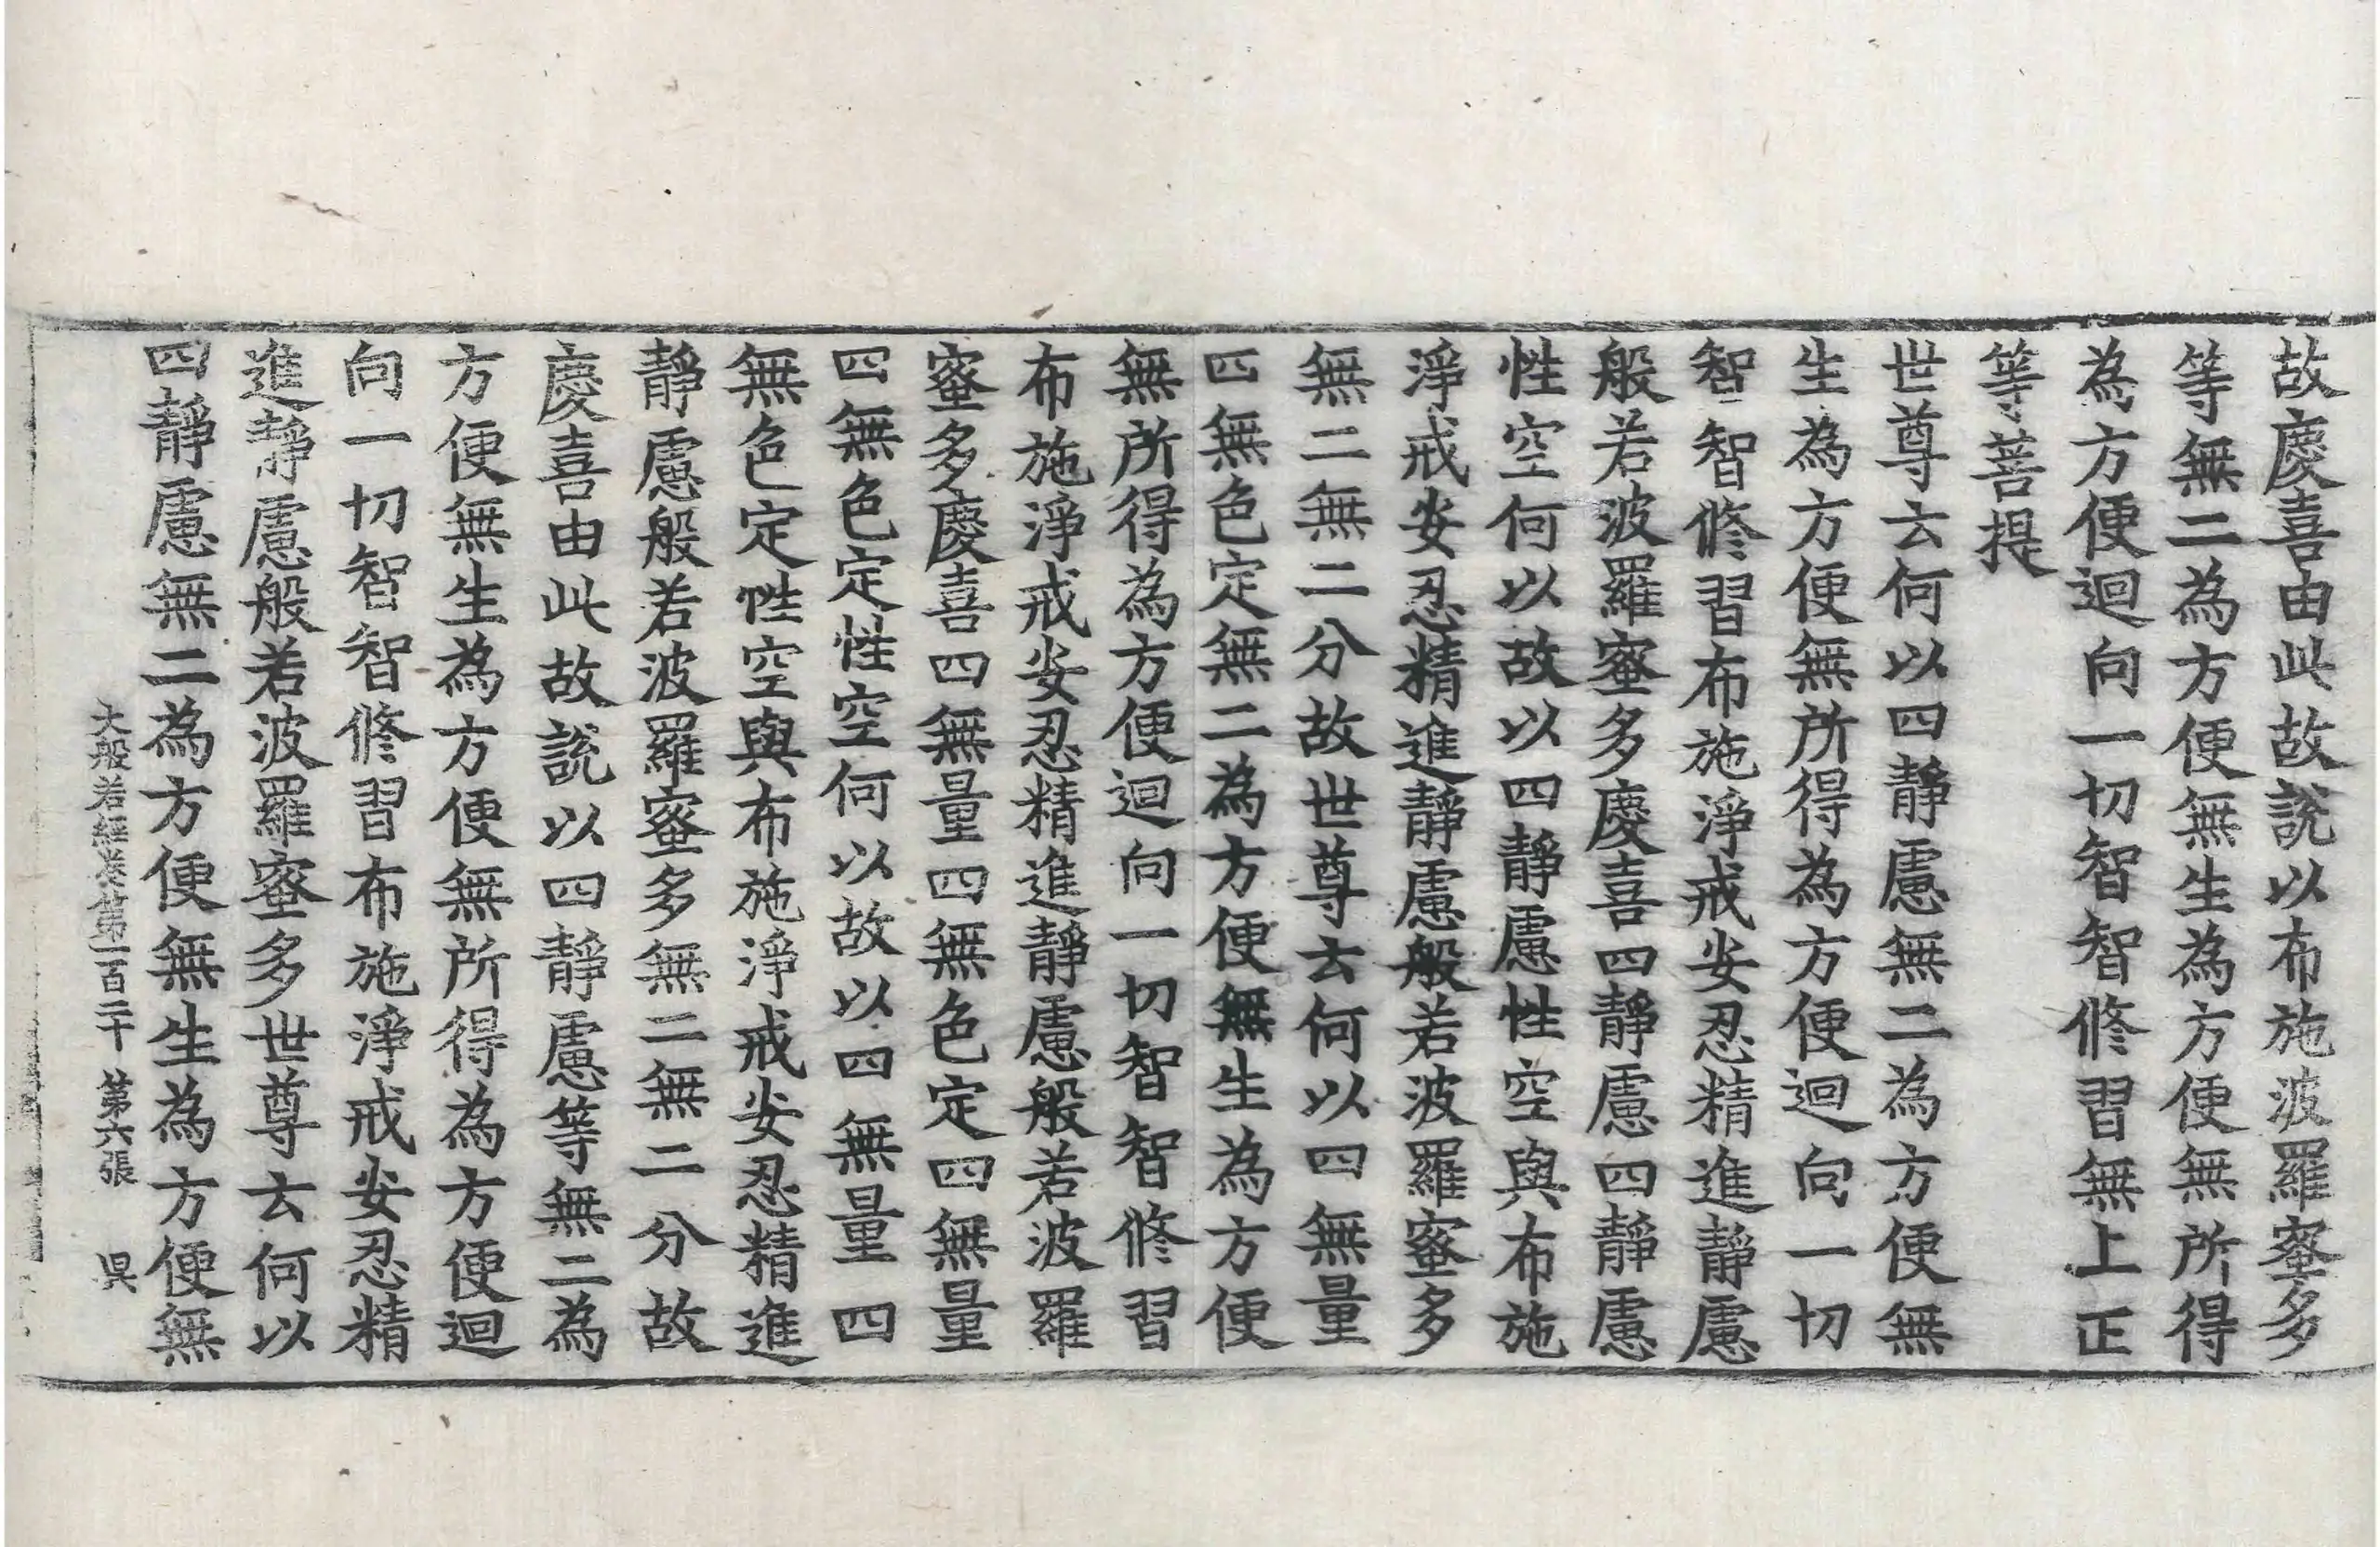 故慶喜由此故說以布施波羅蜜多
等無二為方便無生為方便無所得
為方便迴向一切智智修習無上正
等菩提
世尊云何以四靜慮無二為方便無
生為方便無所得為方便迴向一切
智智修習布施淨戒安忍精進靜慮
般若波羅蜜多慶喜四靜慮四靜慮
性空何以故以四靜慮性空與布施
淨戒安忍精進靜慮般若波羅蜜多
無二無二分故世尊云何以四無量
四無色定無二為方便無生為方便
無所得為方便迴向一切智智修習
布施淨戒安忍精進靜慮般若波羅
蜜多慶喜四無量四無色定四無量
四無色定性空何以故以四無量四
無色定性空與布施淨戒安忍精進
靜慮般若波羅蜜多無二無二分故
慶喜由此故說以四靜慮等無二為
方便無生為方便無所得為方便迴
向一切智智修習布施淨戒安忍精
進靜慮般若波羅蜜多世尊云何以
四靜慮無二為方便無生為方便無
大般若經卷第一百二十 第六張 昃